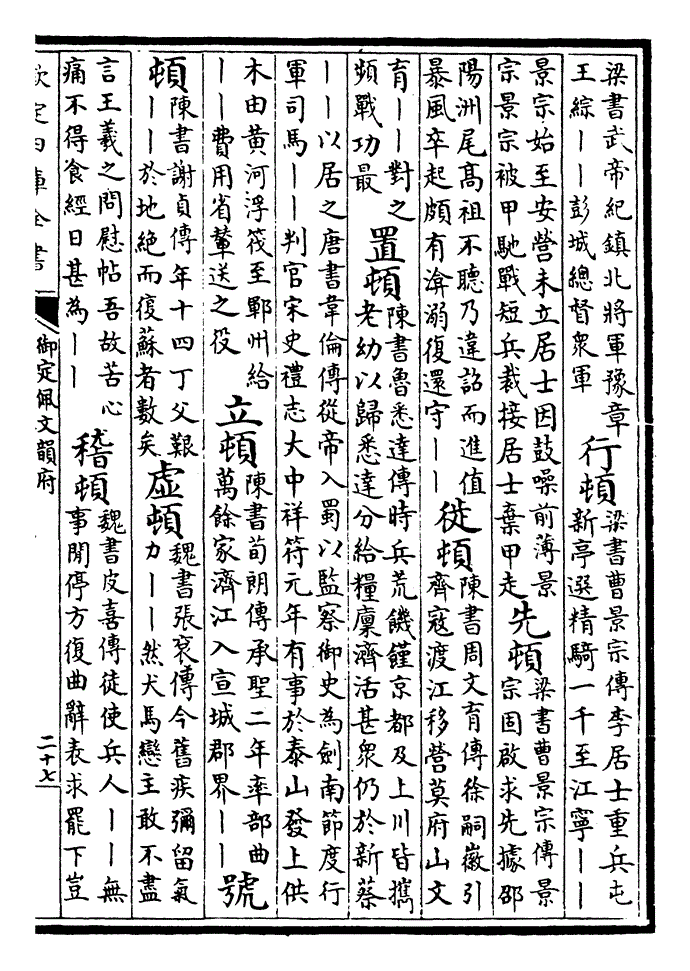 梁書武帝紀鎮北將軍豫章
王綜丨丨彭城總督眾軍
行頓
梁書曹景宗傳李居士重兵屯
新亭選精騎一千至江寧丨丨
景宗始至安營未立居士因鼓噪前薄景
宗景宗被甲馳戰短兵裁接居士棄甲走
先頓
梁書曹景宗傳景
宗固啟求先據邵
陽洲尾高祖不聽乃違詔而進值
暴風卒起頗有渰溺復還守丨丨
徙頓
陳書周文育傳徐嗣徽引
齊寇渡江移營莫府山文
育丨丨對之
頻戰功最
置頓
陳書魯悉達傳時兵荒饑饉京都及上川皆攜
老幼以歸悉達分給糧廩濟活甚眾仍於新蔡
丨丨以居之唐書韋倫傳從帝入蜀以監察御史為劍南節度行
軍司馬丨丨判官宋史禮志大中祥符元年有事於泰山發上供
木由黄河浮筏至鄆州給
丨丨費用省輦送之役
立頓
陳書荀朗傳承聖二年率部曲
萬餘家濟江入宣城郡界丨丨
號
頓
陳書謝貞傳年十四丁父艱
丨丨於地絶而復蘇者數矣
虛頓
魏書張袞傳今舊疾彌留氣
力丨丨然犬馬戀主敢不盡
言王羲之問慰帖吾故苦心
痛不得食經日甚為丨丨
稽頓
魏書皮喜傳徒使兵人丨丨無
事閒停方復曲辭表求罷下豈
欽定四庫全書
御定佩文韻府
二十七